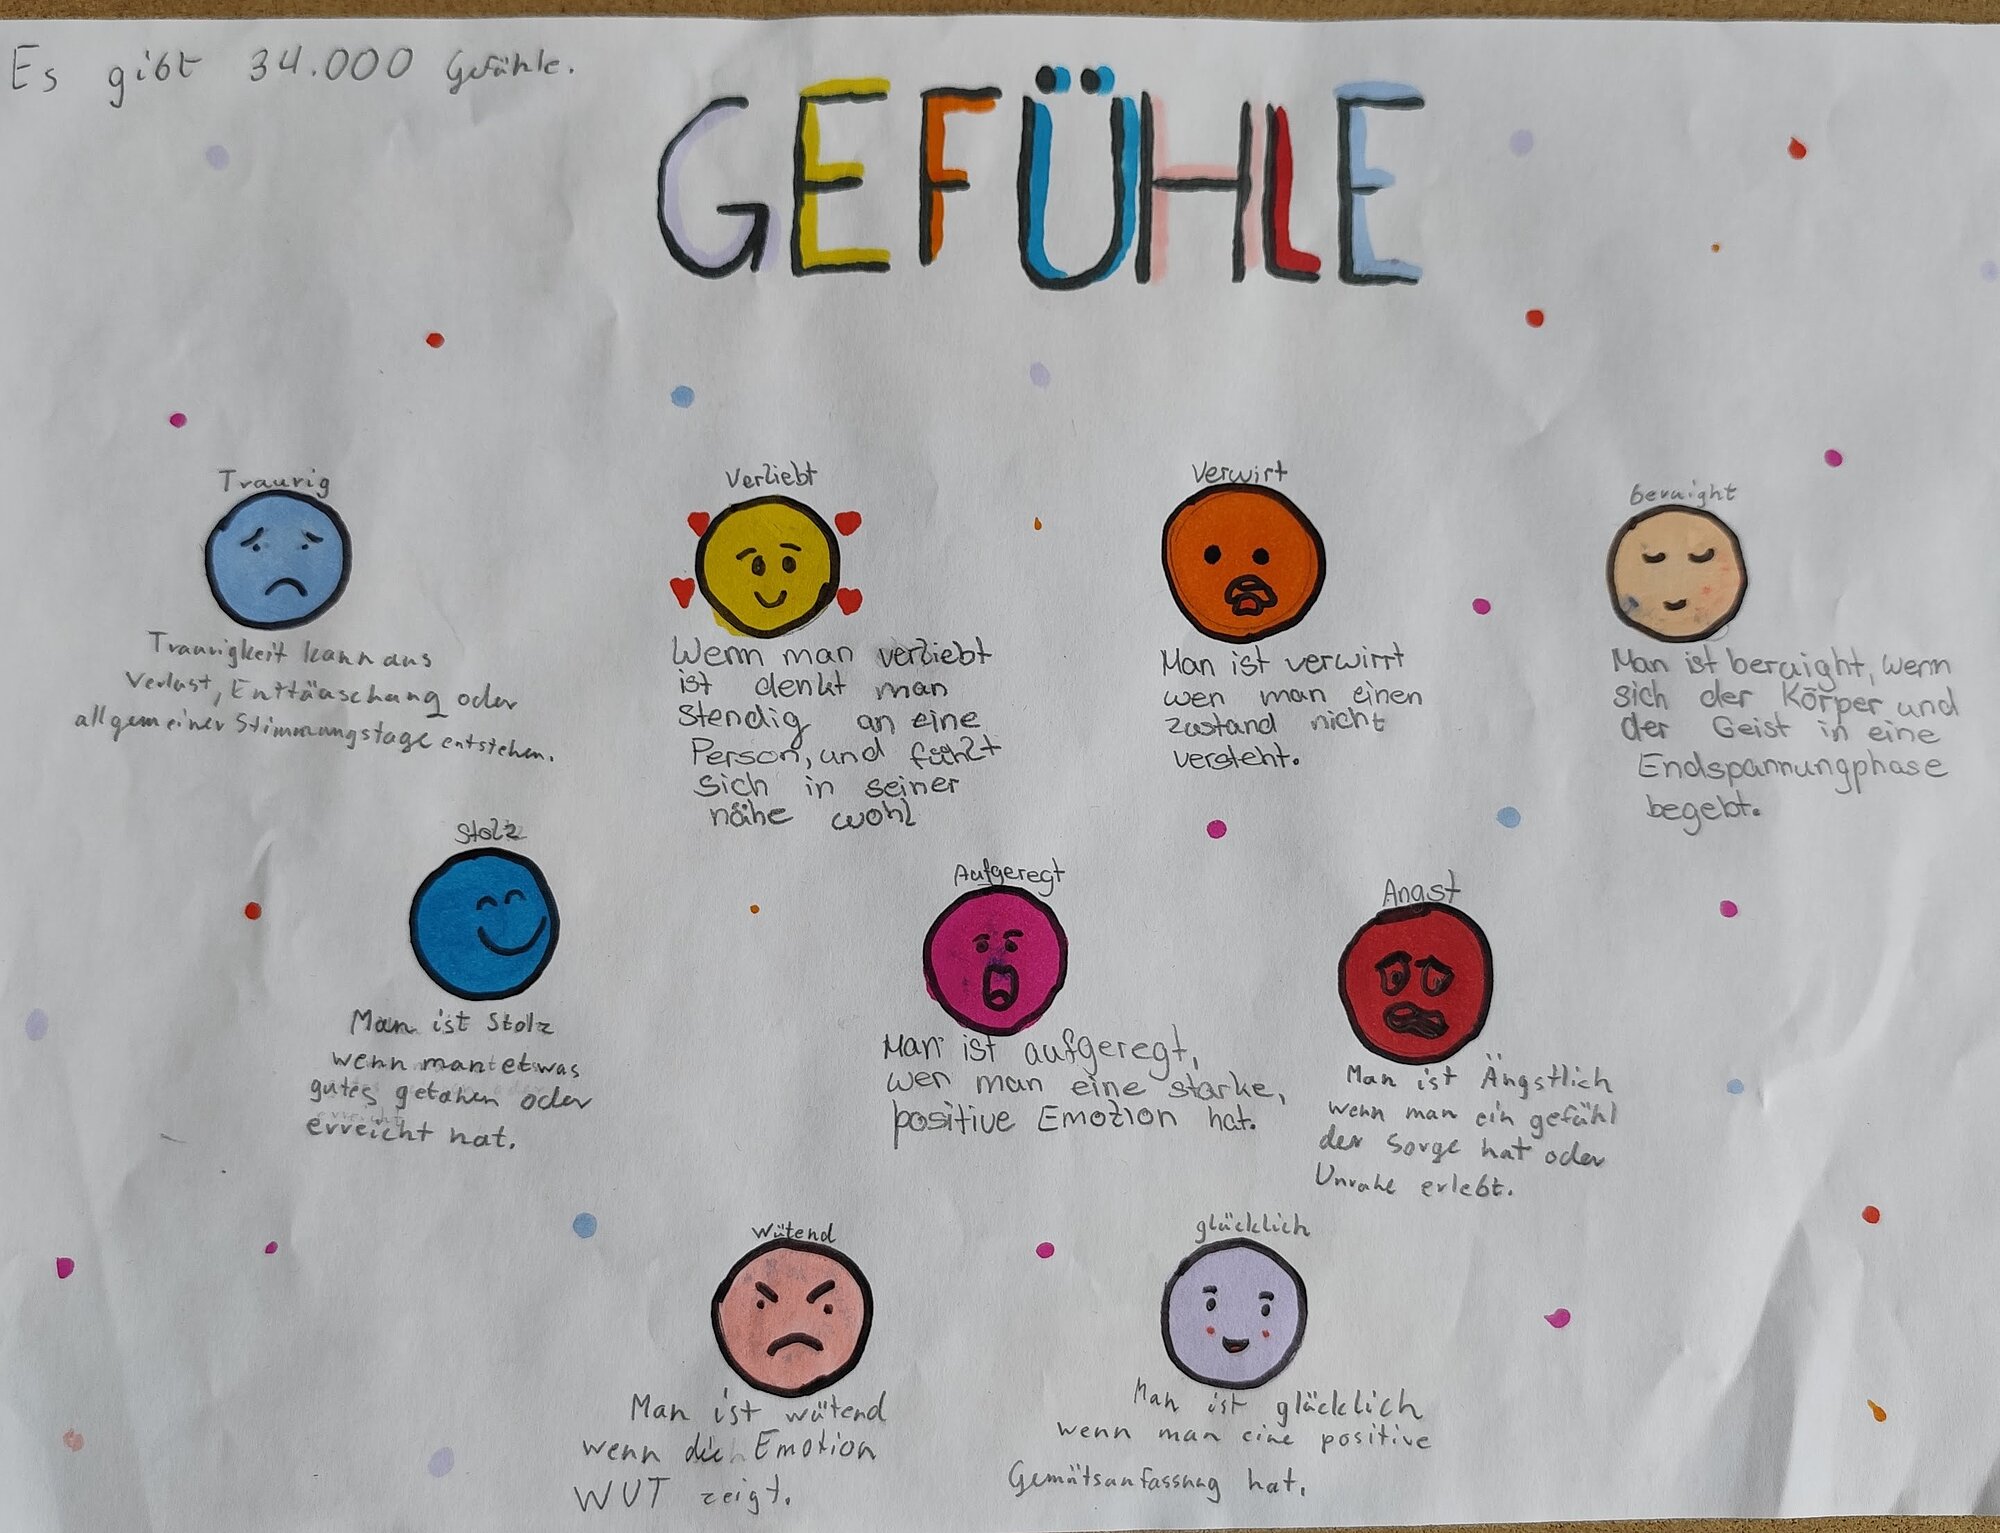 Es gibt 34.000 Gefühle.
GEFÜHLE
Traurig
Traurigkeit kann aus
Verlust, Enttäuschung oder
allgemeiner Stimmungstage entstehen.
Verliebt
Wenn man verliebt
ist denkt man
stendig an eine
Person, und fühlt
sich in seiner
nähe wohl
Verwirt
Man ist verwirrt
wen man einen
zustand nicht
versteht.
beruight
Man ist beruight, wenn
sich der Körper und
der Geist in eine
Endspannungphase
begebt.
Stolz
Man ist Stolz
wenn man etwas
gutes getahen oder
erreicht hat.
Aufgeregt
Man ist aufgeregt,
wen man eine starke,
positive Emotion hat.
Angst
Man ist Ängstlich
wenn man ein gefühl
der Sorge hat oder
Unruhe erlebt.
wütend
Man ist wütend
wenn die Emotion
WUT zeigt.
glücklich
Man ist glücklich
wenn man eine positive
Gemütsanfassung hat.